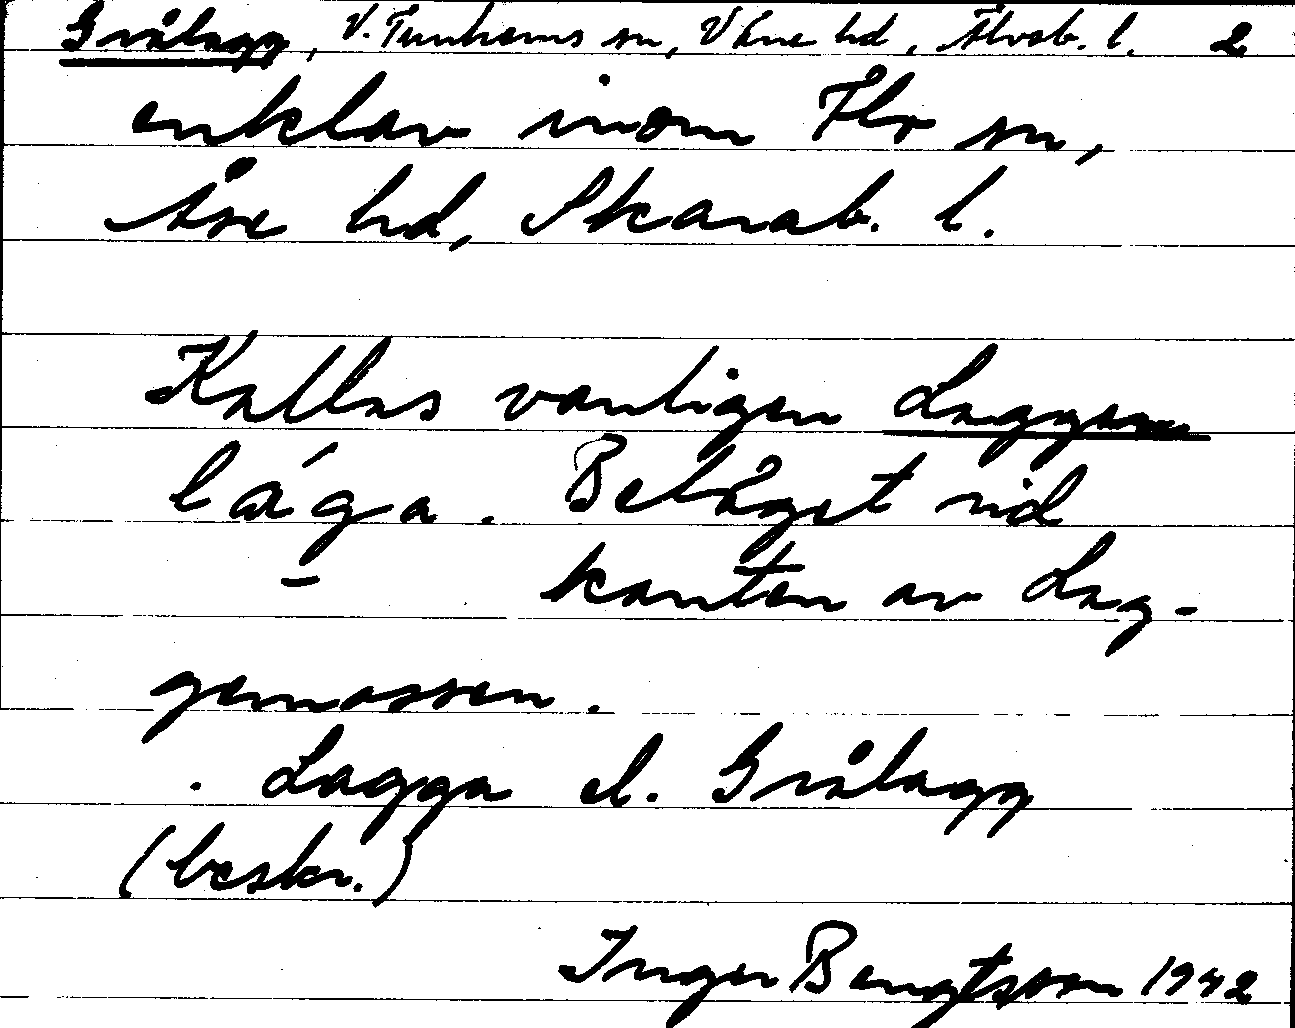 Grålagg, V. Tunhems sn, Väne hd, Älvsb. l. 2
enklav inom Flo sn,
Åse hd, Skarab. l.
Kallas vanligen Laggen
lága. Beläget vid
kanten av Lag-
gemossen.
. Lagga el. Grålagg
(beskr.)
Inger Bengtsson 1942